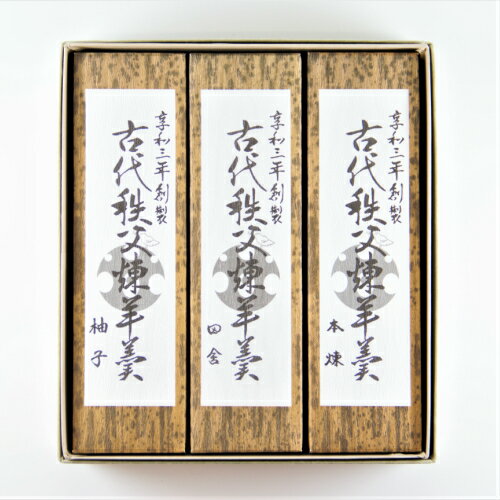 享和三年創製
古代秩父煉羊羹
本煉
享和三年創製
古代秩父煉羊羹
田舎
享和三年創製
古代秩父煉羊羹
柚子